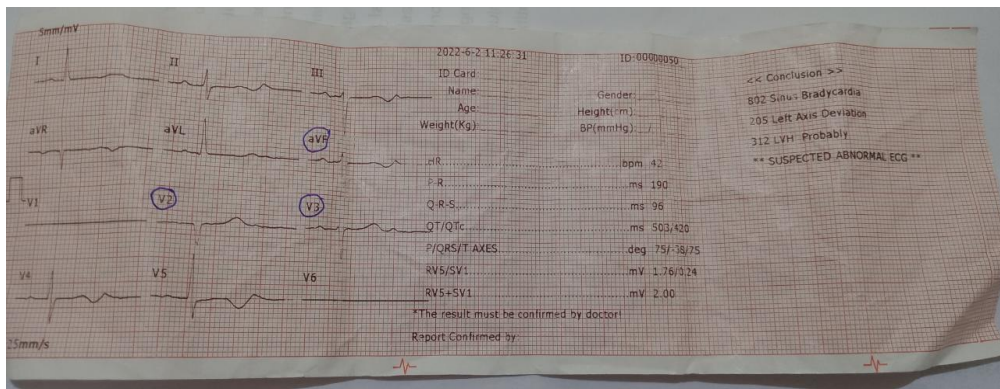 5mm/mV
I
II
III
aVR
aVL
aVF
V1
V2
V3
V4
V5
V6
25mm/s
2022-6-2 11:26:31 ID:00000050
ID Card:
Name: Gender:
Age: Height(cm):
Weight(Kg): BP(mmHg): /
HR bpm 42
P-R ms 190
Q-R-S ms 96
QT/QTc ms 503/420
P/QRS/T AXES deg 75/-38/75
RV5/SV1 mV 1.76/0.24
RV5+SV1 mV 2.00
*The result must be confirmed by doctor!
Report Confirmed by:
<< Conclusion >>
802 Sinus Bradycardia
205 Left Axis Deviation
312 LVH Probably
** SUSPECTED ABNORMAL ECG **